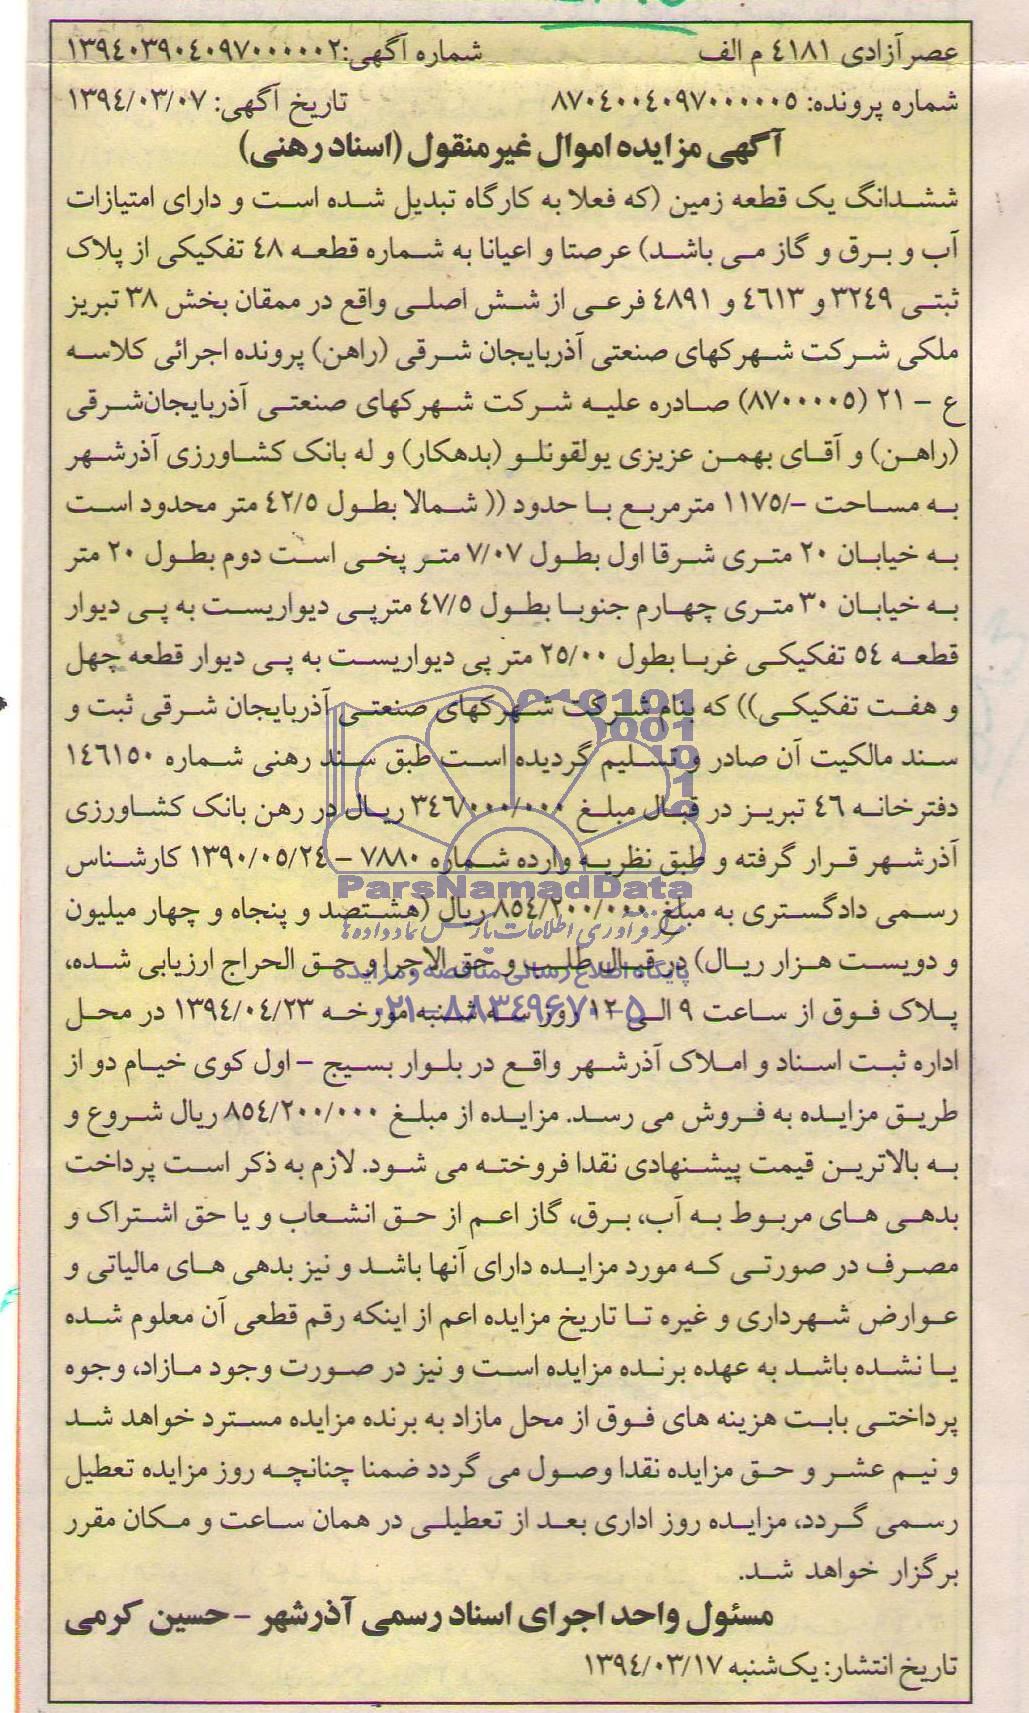 عصر آزادی ٤١٨١ م الف
شماره آگهی: ١٣٩٤٠٣٩٠٤٠٩٧٠٠٠٠٠٢
شماره پرونده: ٨٧٠٤٠٠٤٠٩٧٠٠٠٠٠٥
تاریخ آگهی: ١٣٩٤/٠٣/٠٧
آگهی مزایده اموال غیر منقول (اسناد رهنی)
ششدانگ یک قطعه زمین (که فعلا به کارگاه تبدیل شده است و دارای امتیازات
آب و برق و گاز می باشد) عرصتا و اعیانا به شماره قطعه ٤٨ تفکیکی از پلاک
ثبتی ٣٢٤٩ و ٤٦١٣ و ٤٨٩١ فرعی از شش اصلی واقع در ممقان بخش ٣٨ تبریز
ملکی شرکت شهرکهای صنعتی آذربایجان شرقی (راهن) پرونده اجرائی کلاسه
ع - ٢١ (٨٧٠٠٠٠٥) صادره علیه شرکت شهرکهای صنعتی آذربایجان‌شرقی
(راهن) و آقای بهمن عزیزی یولقونلو (بدهکار) و له بانک کشاورزی آذرشهر
به مساحت -/١١٧٥ مترمربع با حدود (( شمالا بطول ٤٢/٥ متر محدود است
به خیابان ٢٠ متری شرقا اول بطول ٧/٠٧ متر پخی است دوم بطول ٢٠ متر
به خیابان ٣٠ متری چهارم جنوبا بطول ٤٧/٥ مترپی دیواریست به پی دیوار
قطعه ٥٤ تفکیکی غربا بطول ٢٥/٠٠ متر پی دیواریست به پی دیوار قطعه چهل
و هفت تفکیکی)) که بنام شرکت شهرکهای صنعتی آذربایجان شرقی ثبت و
سند مالکیت آن صادر و تسلیم گردیده است طبق سند رهنی شماره ١٤٦١٥٠
دفترخانه ٤٦ تبریز در قبال مبلغ ٣٤٦/٠٠٠/٠٠٠ ریال در رهن بانک کشاورزی
آذرشهر قرار گرفته و طبق نظریه وارده شماره ٧٨٨٠ - ١٣٩٠/٠٥/٢٤ کارشناس
رسمی دادگستری به مبلغ ٨٥٤/٢٠٠/٠٠٠ ریال (هشتصد و پنجاه و چهار میلیون
و دویست هزار ریال) در قبال طلب و حق الاجرا و حق الحراج ارزیابی شده،
پلاک فوق از ساعت ٩ الی ١٢ روز سه شنبه مورخه ١٣٩٤/٠٤/٢٣ در محل
اداره ثبت اسناد و املاک آذرشهر واقع در بلوار بسیج - اول کوی خیام دو از
طریق مزایده به فروش می رسد. مزایده از مبلغ ٨٥٤/٢٠٠/٠٠٠ ریال شروع و
به بالاترین قیمت پیشنهادی نقدا فروخته می شود. لازم به ذکر است پرداخت
بدهی های مربوط به آب، برق، گاز اعم از حق انشعاب و یا حق اشتراک و
مصرف در صورتی که مورد مزایده دارای آنها باشد و نیز بدهی های مالیاتی و
عوارض شهرداری و غیره تا تاریخ مزایده اعم از اینکه رقم قطعی آن معلوم شده
یا نشده باشد به عهده برنده مزایده است و نیز در صورت وجود مازاد، وجوه
پرداختی بابت هزینه های فوق از محل مازاد به برنده مزایده مسترد خواهد شد
و نیم عشر و حق مزایده نقدا وصول می گردد ضمنا چنانچه روز مزایده تعطیل
رسمی گردد، مزایده روز اداری بعد از تعطیلی در همان ساعت و مکان مقرر
برگزار خواهد شد.
مسئول واحد اجرای اسناد رسمی آذرشهر - حسین کرمی
تاریخ انتشار: یک‌شنبه ١٣٩٤/٠٣/١٧
ParsNamadData
مرکز فرآوری اطلاعات پارس نماد داده ها
پایگاه اطلاع رسانی مناقصه و مزایده
۰۲۱-۸۸۳۴۹۶۷۰-۵